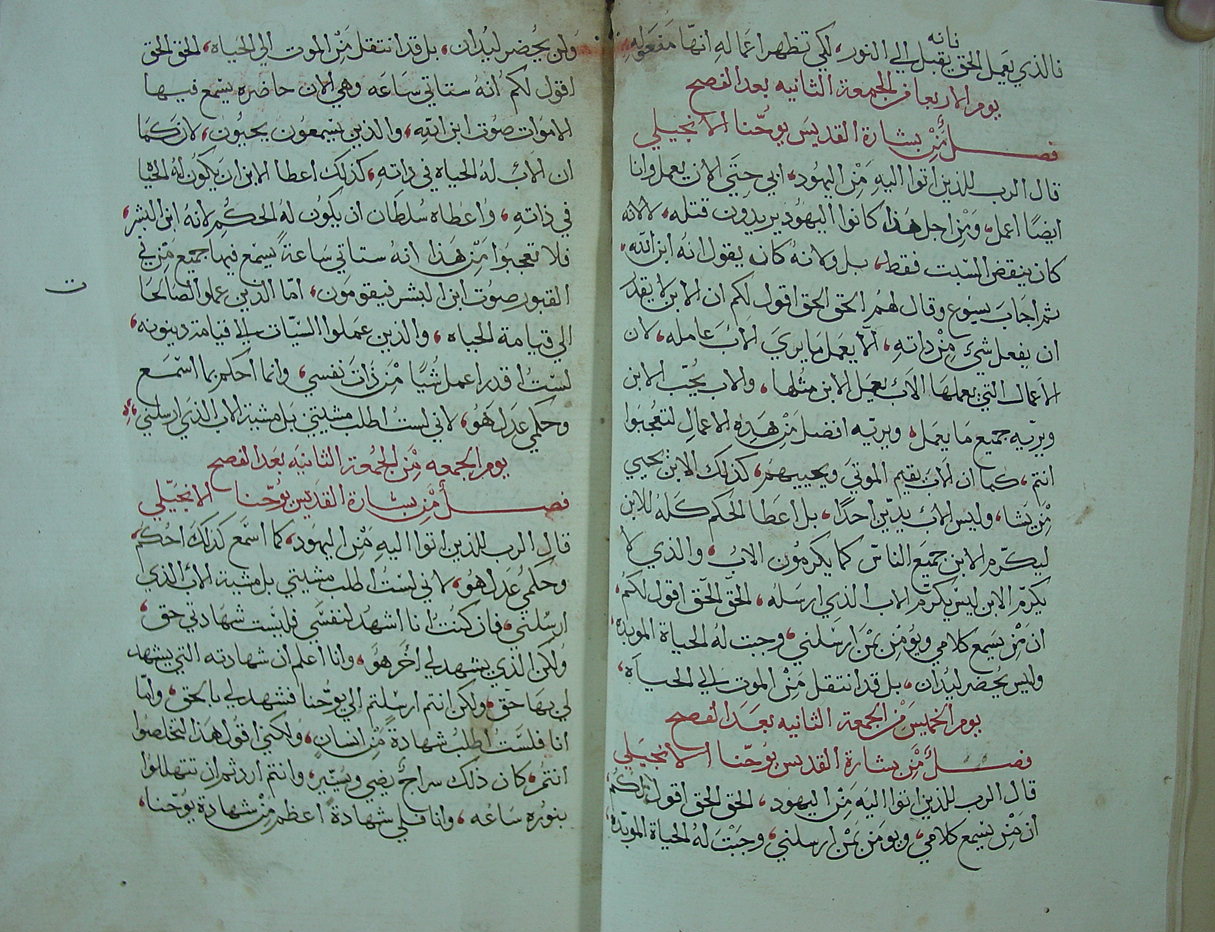 فانه
فالذي يعمل الحق يقبل الي النور، لكي تظهر اعماله انها مفعوله
يوم الاربعا في الجمعة الثانيه بعد الفصح
فصل من بشارة القديس يوحنا الانجيلي
قال الرب للذين اتوا اليه من اليهود، ابي حتي الان يعمل وانا
ايضًا اعمل، ومن اجل هذا كانوا اليهود يريدون قتله، لا لانه
كان ينقض السبت فقط، بل ولانه كان يقول انه ابن الله،
ثم اجاب يسوع وقال لهم الحق الحق اقول لكم ان الابن لا يقدر
ان يفعل شي من ذاته، الا يعمل ما يري الاب عامله، لان
الاعمال التي يعملها الاب يعمل الابن مثلها، والاب يحب الابن
ويريه جميع ما يعمل، ويريه افضل من هذه الاعمال لتعجبوا
انتم، كما ان الاب يقيم الموتي ويحييهم، كذلك الابن يحيي
من يشا، وليس الاب يدين احدًا، بل اعطا الحكم كله للابن
ليكرم الابن جميع الناس كما يكرمون الاب، والذي لا
يكرم الابن ليس يكرم الاب الذي ارسله، الحق الحق اقول لكم،
ان من يسمع كلامي ويومن بمن ارسلني، وجبت له الحياة الموبده
وليس يحضر ليدان، بل قد انتقل من الموت الي الحياة،
يوم الخميس من الجمعة الثانيه بعد الفصح
فصل من بشارة القديس يوحنا الانجيلي
قال الرب للذين اتوا اليه من اليهود، الحق الحق اقول لكم
ان من يسمع كلامي، ويومن بمن ارسلني، وجبت له الحياة الموبده
ولن يحضر ليدان، بل قد انتقل من الموت الي الحياه، الحق الحق
اقول لكم انه ستاتي ساعه وهي الان حاضره يسمع فيها
الاموات صوت ابن الله، والذين يسمعون يحيون، لان كما
ان الاب له الحياه في ذاته، كذلك اعطا الابن ان يكون له الحياه
في ذاته، واعطاه سلطان ان يكون له الحكم لانه ابن البشر،
فلا تعجبوا من هذا انه ستاتي ساعة يسمع فيها جميع من في
القبور صوت ابن البشر فيقومون، اما الذين عملوا الصالحات
الي قيامة الحياه، والذين عملوا السيات الي قيامة دينونه،
لست اقدر اعمل شيًا من ذات نفسي، وانما احكم بما اسمع
وحكمي عدل هو، لاني لست اطلب مشيتي بل مشية الاب الذي ارسلني،
يوم الجمعه من الجمعة الثانيه بعد الفصح
فصل من بشارة القديس يوحنا الانجيلي
قال الرب للذين اتوا اليه من اليهود، كما اسمع كذلك احكم،
وحكمي عدل هو، لاني لست اطلب مشيتي بل مشية الاب الذي
ارسلني، فان كنت انا اشهد لنفسي فليست شهادتي حق،
ولكن الذي يشهد لي اخر هو، وانا اعلم ان شهادته التي يشهد
لي بها حق، ولكن انتم ارسلتم الي يوحنا فشهد لي بالحق، واما
انا فلست اطلب شهادة من انسان، ولكني اقول هذا لتخلصوا
انتم، كان ذلك سراج يضي وينير، وانتم اردتم ان تتهللوا
بنوره ساعه، وانا فلي شهادة اعظم من شهادة يوحنا،